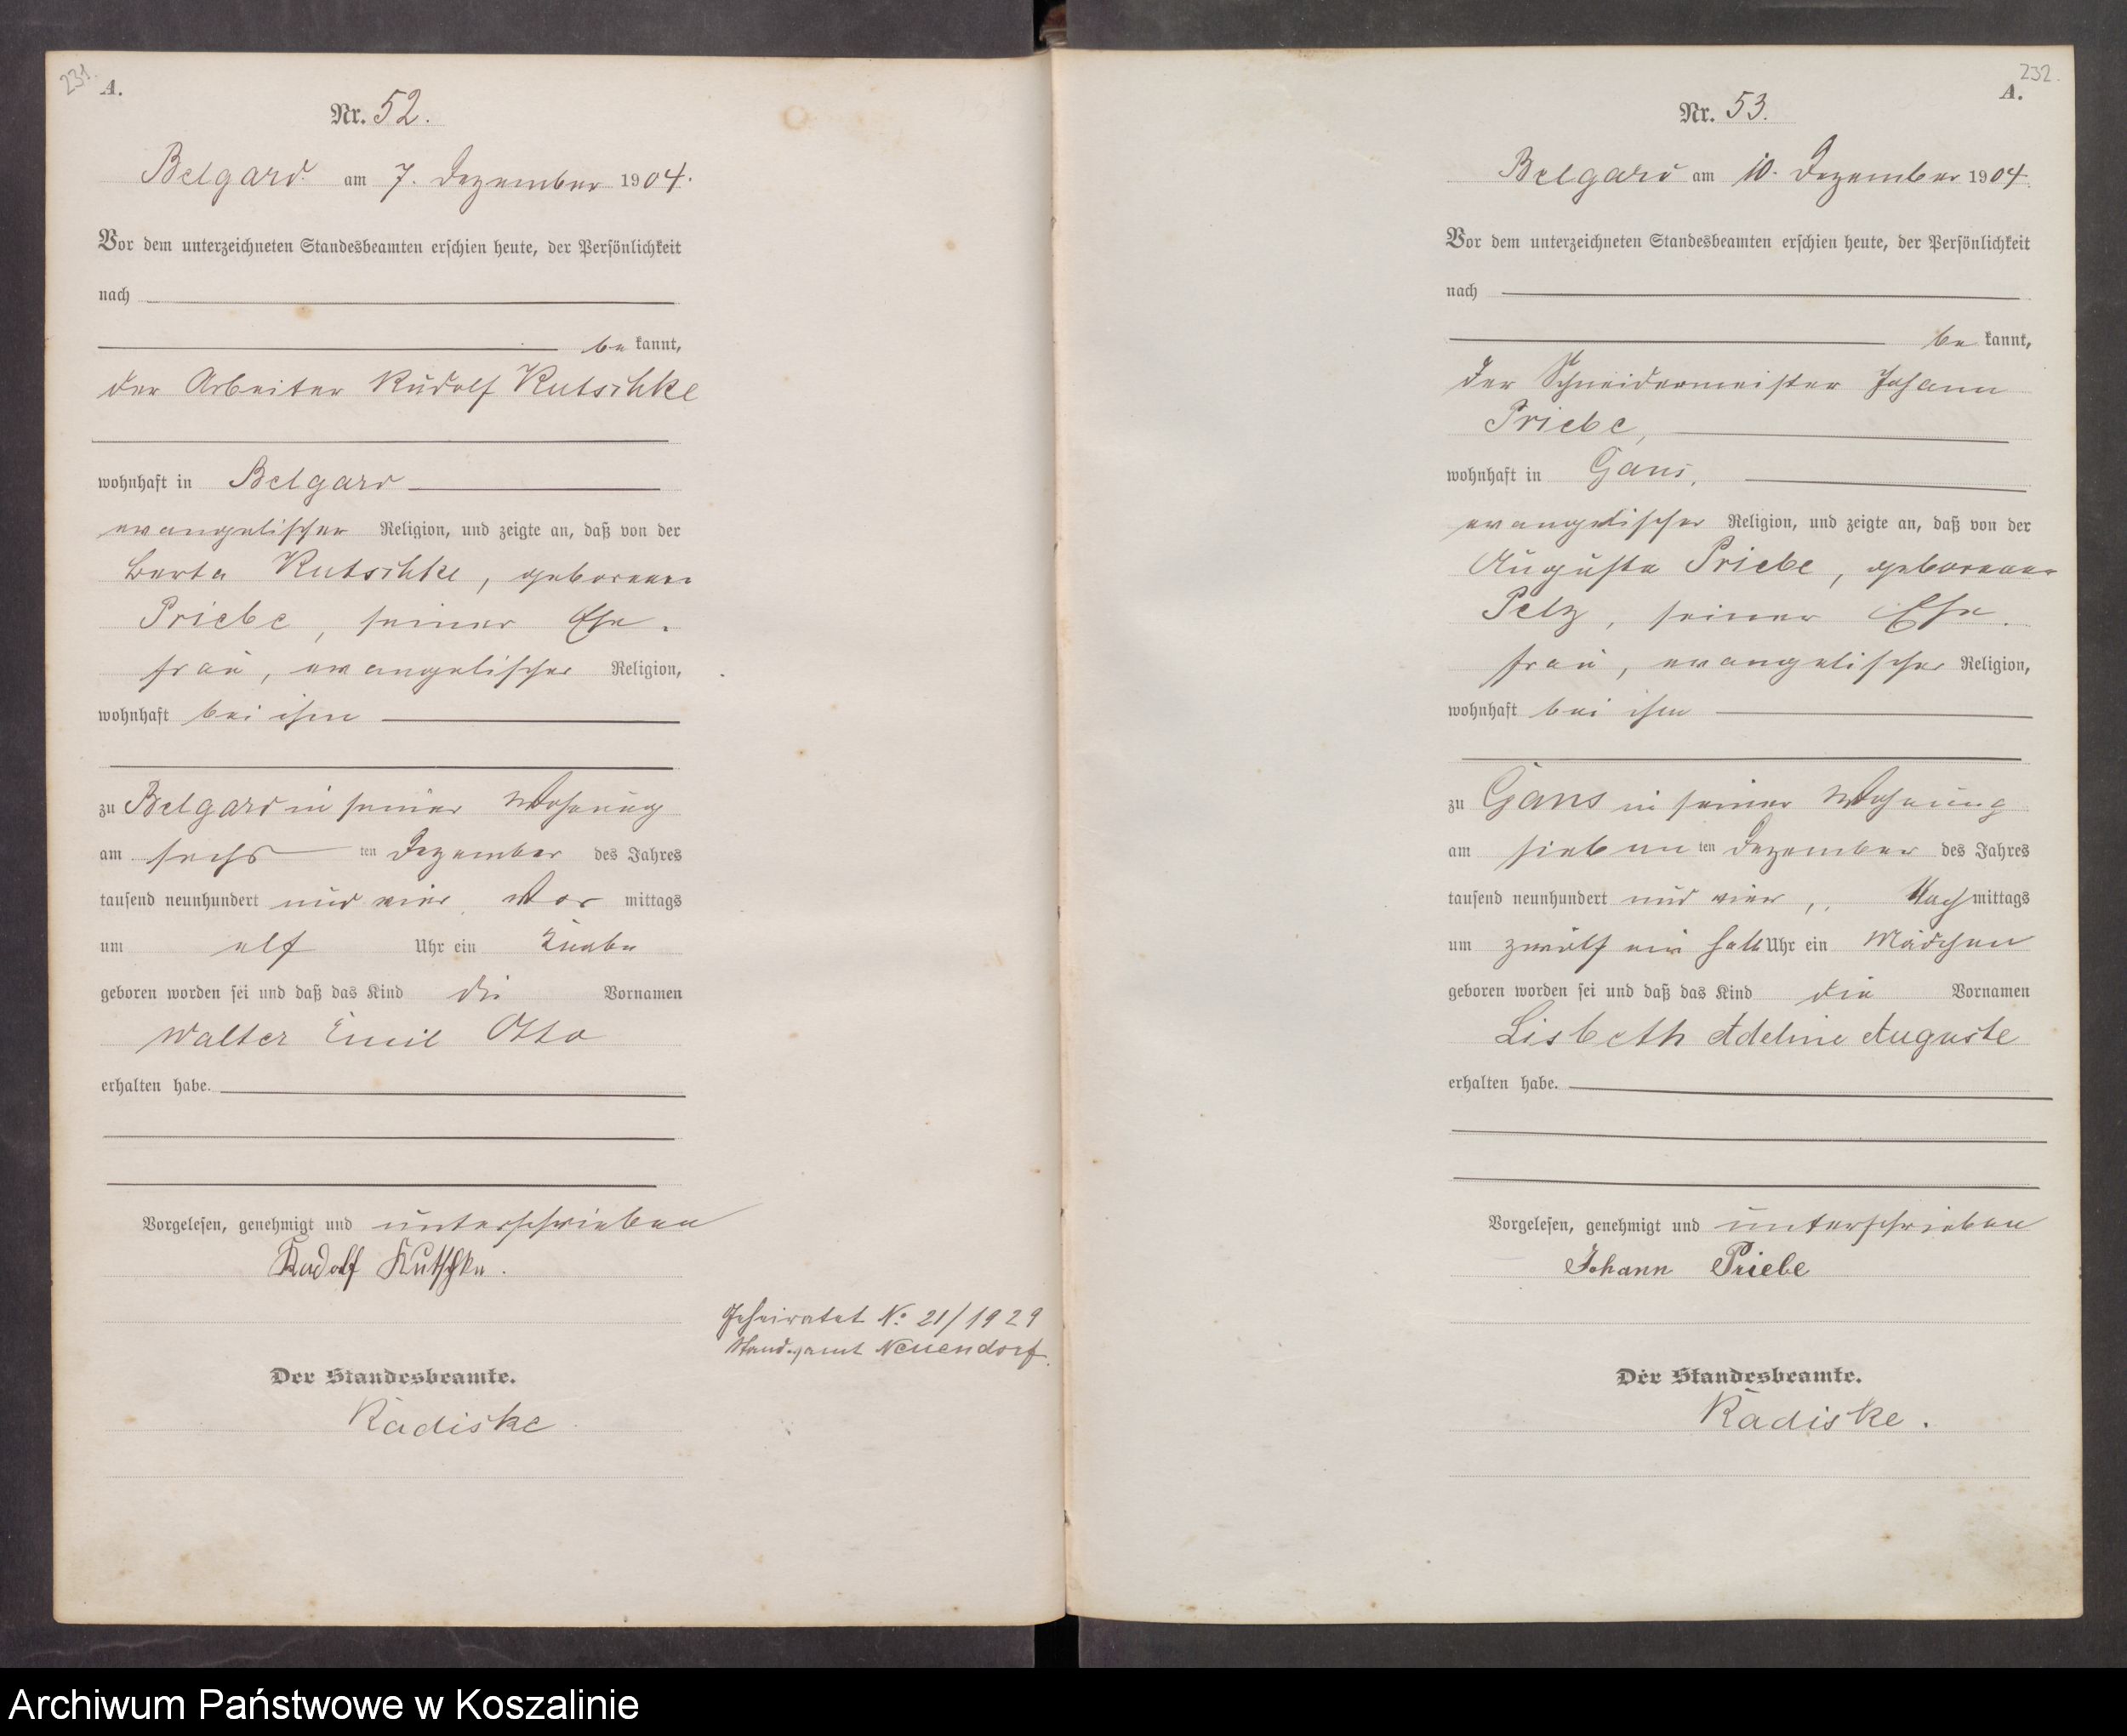 231.
A.
Nr. 52.
Belgard am 7. Dezember 1904.
Vor dem unterzeichneten Standesbeamten erschien heute, der Persönlichkeit
nach
be kannt,
der Arbeiter Rudolf Kutschke
wohnhaft in Belgard
evangelischer Religion, und zeigte an, daß von der
Berta Kutschke, geborenen
Priebe, seiner Ehe-
frau, evangelischer Religion,
wohnhaft bei ihm
zu Belgard in seiner Wohnung
am sechs ten Dezember des Jahres
tausend neunhundert und vier Vor mittags
um elf Uhr ein Knabe
geboren worden sei und daß das Kind die Vornamen
Walter Emil Otto
erhalten habe.
Vorgelesen, genehmigt und unterschrieben
Rudolf Kutschke.
Geheiratet No. 21/1929
Standesamt Neuendorf.
Der Standesbeamte.
Radiske
232.
A.
Nr. 53.
Belgard am 10. Dezember 1904.
Vor dem unterzeichneten Standesbeamten erschien heute, der Persönlichkeit
nach
be kannt,
der Schneidermeister Johann
Priebe,
wohnhaft in Gans,
evangelischer Religion, und zeigte an, daß von der
Auguste Priebe, geborenen
Pelz, seiner Ehe-
frau, evangelischer Religion,
wohnhaft bei ihm
zu Gans in seiner Wohnung
am sieben ten Dezember des Jahres
tausend neunhundert und vier, Nach mittags
um zwölf ein halb Uhr ein Mädchen
geboren worden sei und daß das Kind die Vornamen
Lisbeth Adeline Auguste
erhalten habe.
Vorgelesen, genehmigt und unterschrieben
Johann Priebe
Der Standesbeamte.
Radiske.
Archiwum Państwowe w Koszalinie